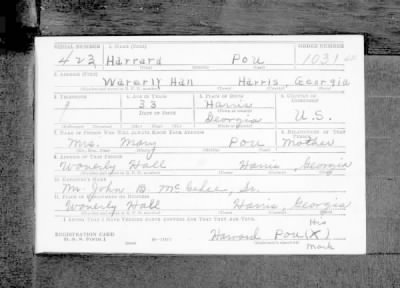 SERIAL NUMBER 1. NAME (Print) ORDER NUMBER
423 Harrard Pou 1031
(First) (Middle) (Last)
2. ADDRESS (Print)
Waverly Hall Harris Georgia
3. TELEPHONE 4. AGE IN YEARS 5. PLACE OF BIRTH 6. COUNTRY OF CITIZENSHIP
33 Harris
DATE OF BIRTH
Georgia U.S.
7. NAME OF PERSON WHO WILL ALWAYS KNOW YOUR ADDRESS 8. RELATIONSHIP OF THAT PERSON
Mrs. Mary Pou Mother
9. ADDRESS OF THAT PERSON
Waverly Hall Harris, Georgia
10. EMPLOYER'S NAME
Mr. John B. McGehee, Sr.
11. PLACE OF EMPLOYMENT OR BUSINESS
Waverly Hall Harris, Georgia
I AFFIRM THAT I HAVE VERIFIED ABOVE ANSWERS AND THAT THEY ARE TRUE.
His
REGISTRATION CARD
D. S. S. Form 1 Howard Pou (X)
Mark